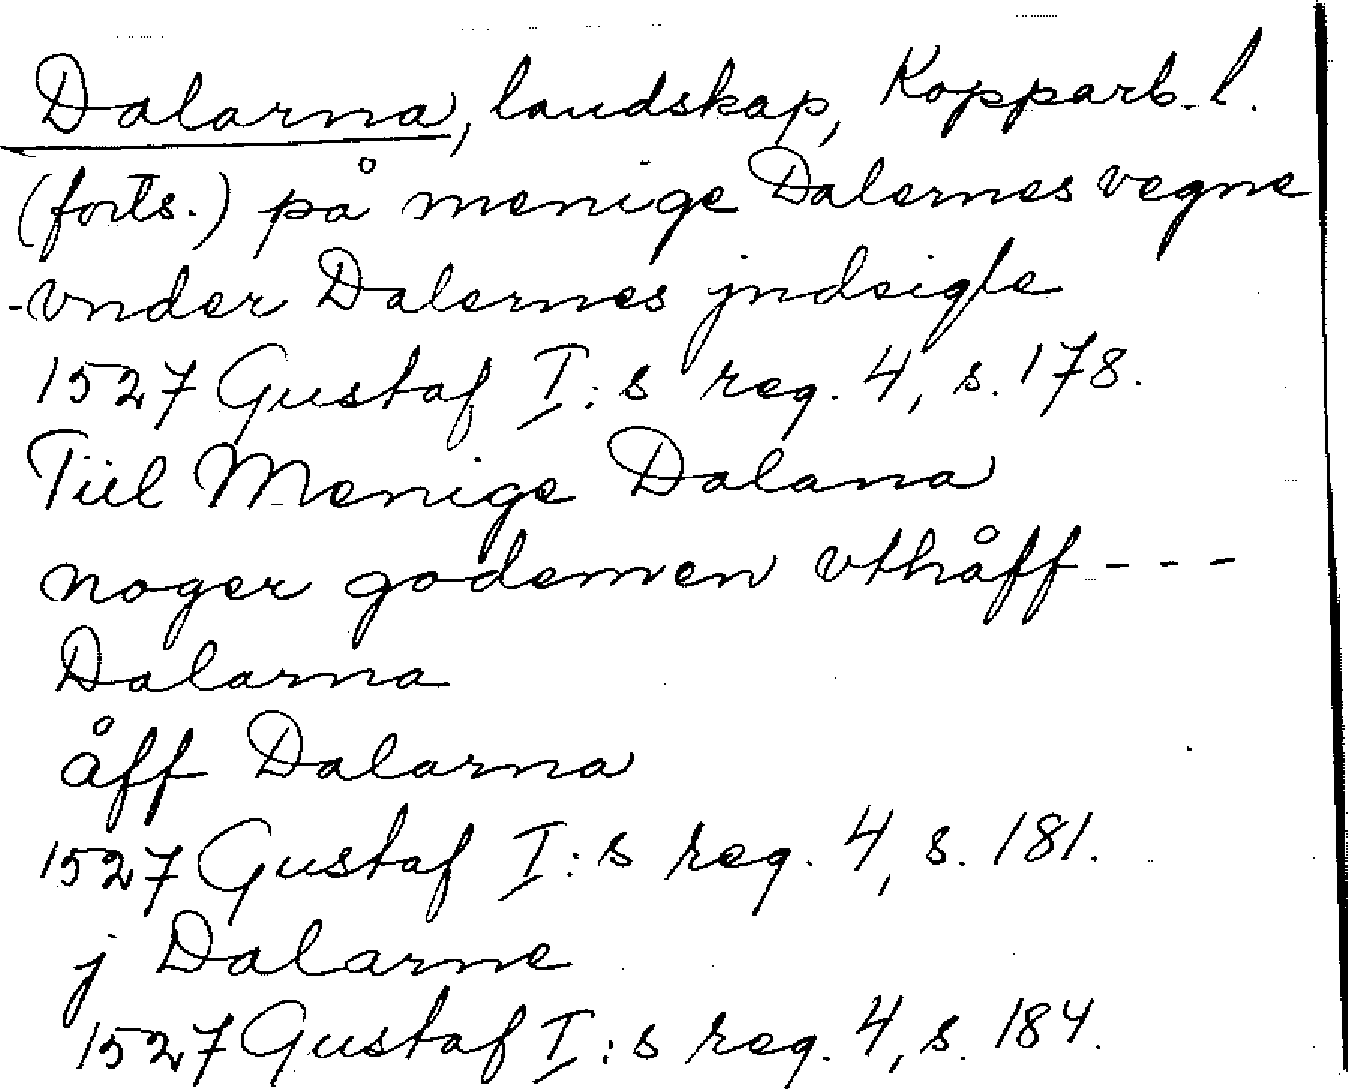 Dalarna, landskap, Kopparb. l.
(forts.) på menige Dalernes vegne
vnder Dalernes jndsigle
1527 Gustaf I:s reg. 4, s. 178.
Tiil Menige Dalana
noger godemen vthåff - - -
Dalarna
åff Dalarna
1527 Gustaf I:s reg. 4, s. 181.
j Dalarne
1527 Gustaf I:s reg. 4, s. 184.